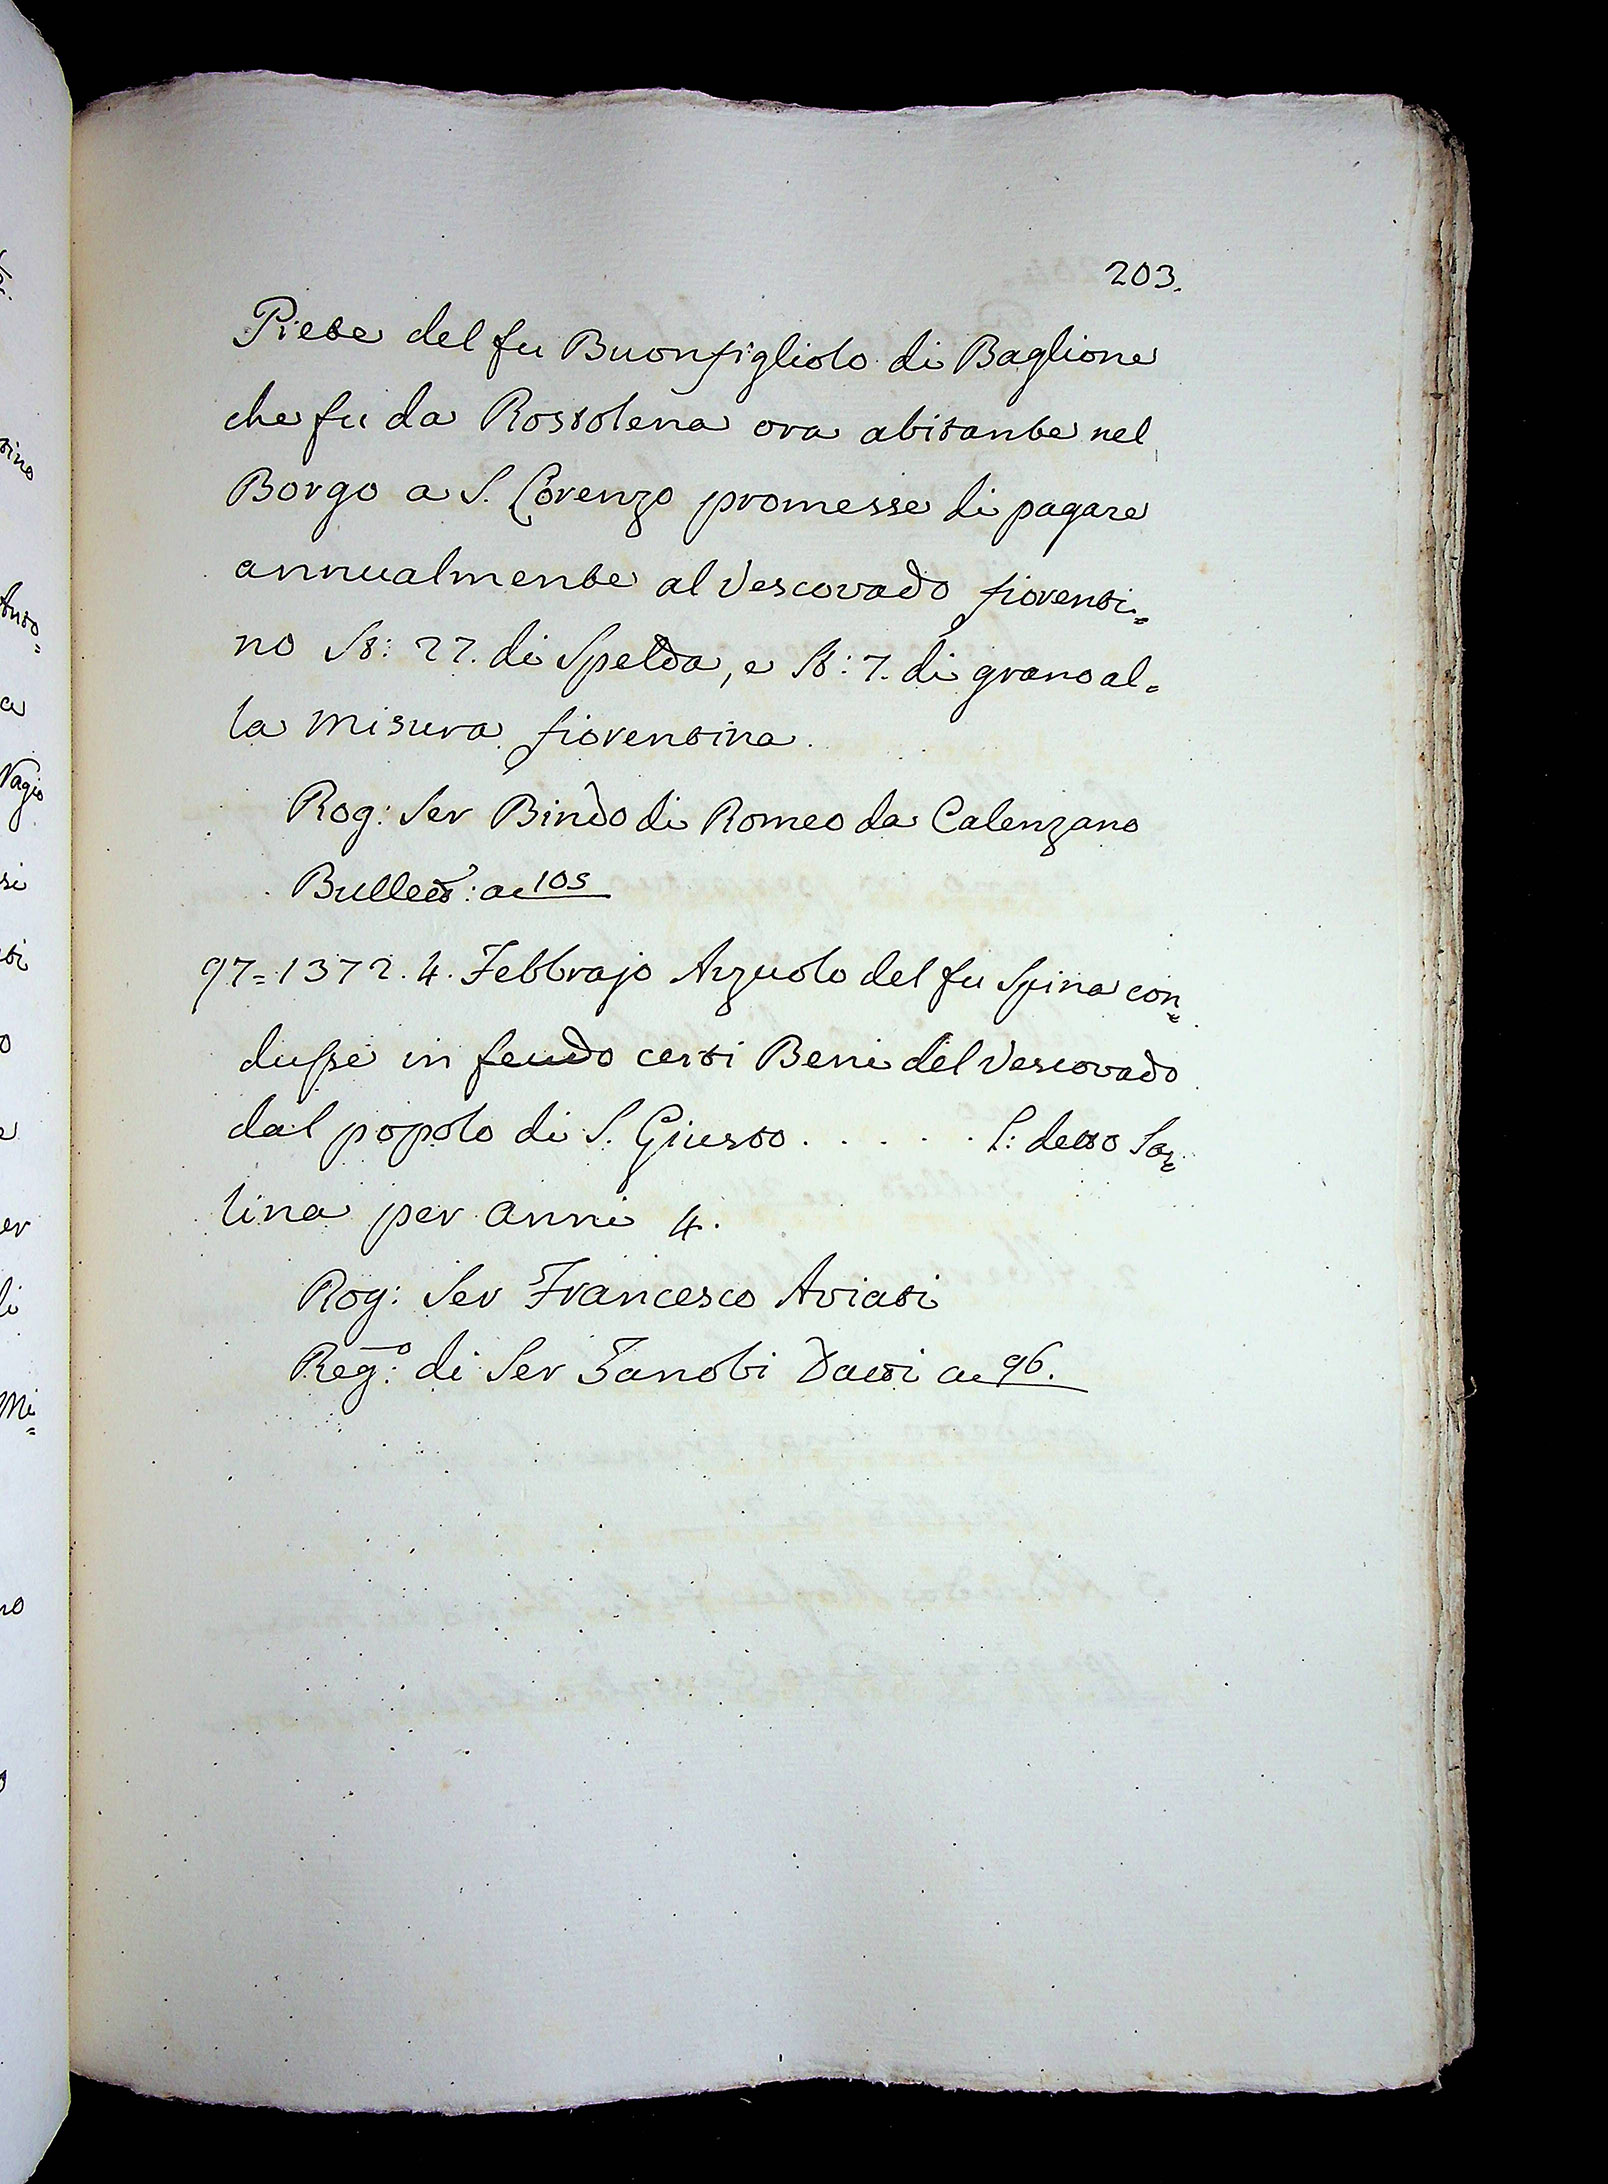 203.
Piete del fu Buonfigliolo di Baglione
che fu da Rostolena ora abitante nel
Borgo a S. Lorenzo promesse di pagare
annualmente al Vescovado fiorenti=
no St: 27. di Spelda, e St: 7. di grano al=
la misura fiorentina.
Rog: Ser Bindo di Romeo da Calenzano
Bullett: a 105
97=1372. 4. Febbrajo Azzuolo del fu Spina con=
dusse in feudo certi Beni del Vescovado
dal popolo di S. Giusto . . . . . . L: detto Sa=
lina per anni 4.
Rog: Ser Francesco Aviati
Reg:o di Ser Zanobi Datti a 96.